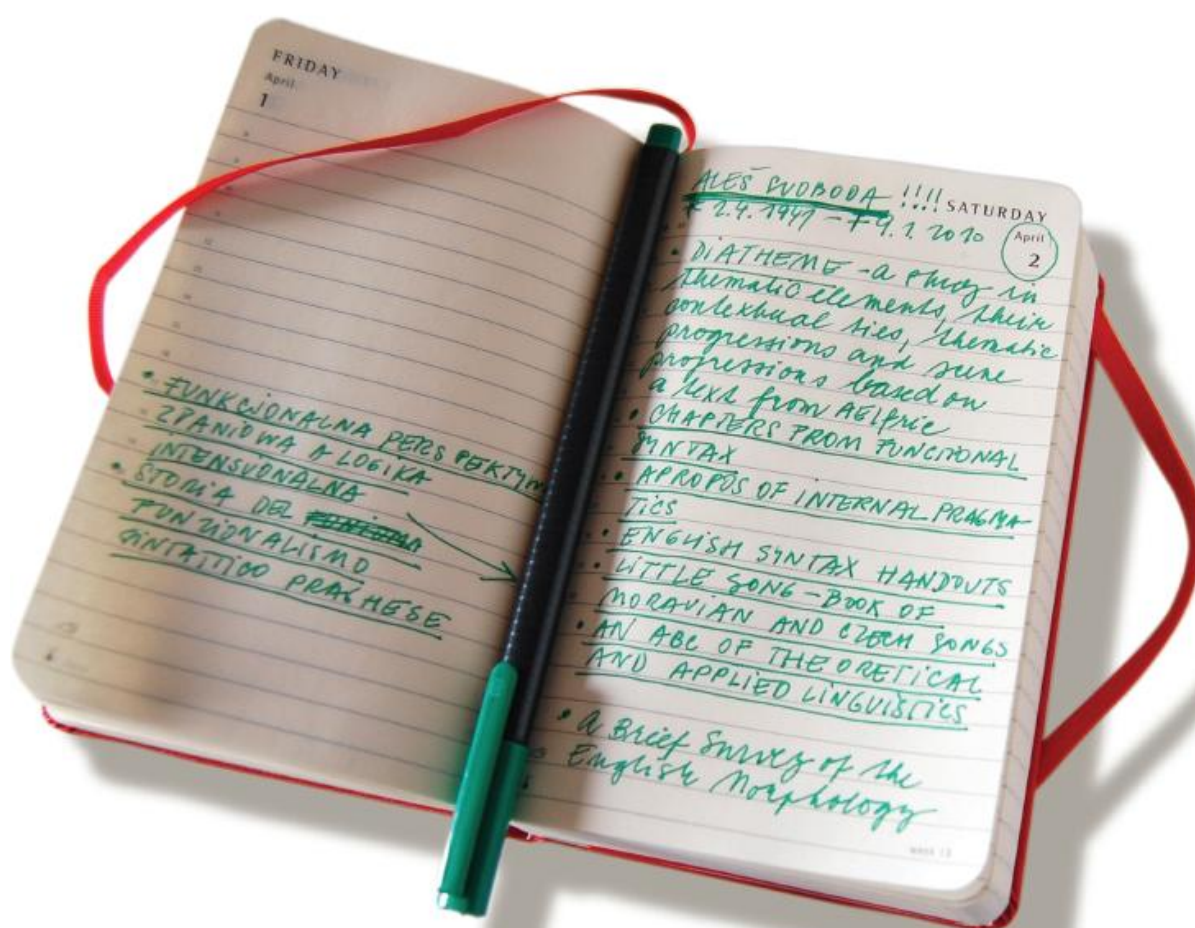 FRIDAY
April
1
• FUNKCJONALNA PERSPEKTYW
ZDANIOWA A LOGIKA
INTENSJONALNA
• STORIA DEL
FUNZIONALISMO
SINTATTICO PRAGHESE
ALEŠ SVOBODA !!!! SATURDAY
* 2.4. 1941 – † 9.1. 2010
April
2
• DIATHEME - a study in
thematic elements, their
contextual ties, thematic
progressions and scene
progressions based on
a text from AELfric
• CHAPTERS FROM FUNCTIONAL
SYNTAX
• APROPOS OF INTERNAL PRAGMA
TICS
• ENGLISH SYNTAX HANDOUTS
• LITTLE SONG – BOOK OF
MORAVIAN AND CZECH SONGS
• AN ABC OF THEORETICAL
AND APPLIED LINGUISTICS
• A Brief Survey of the
English Morphology
week 13